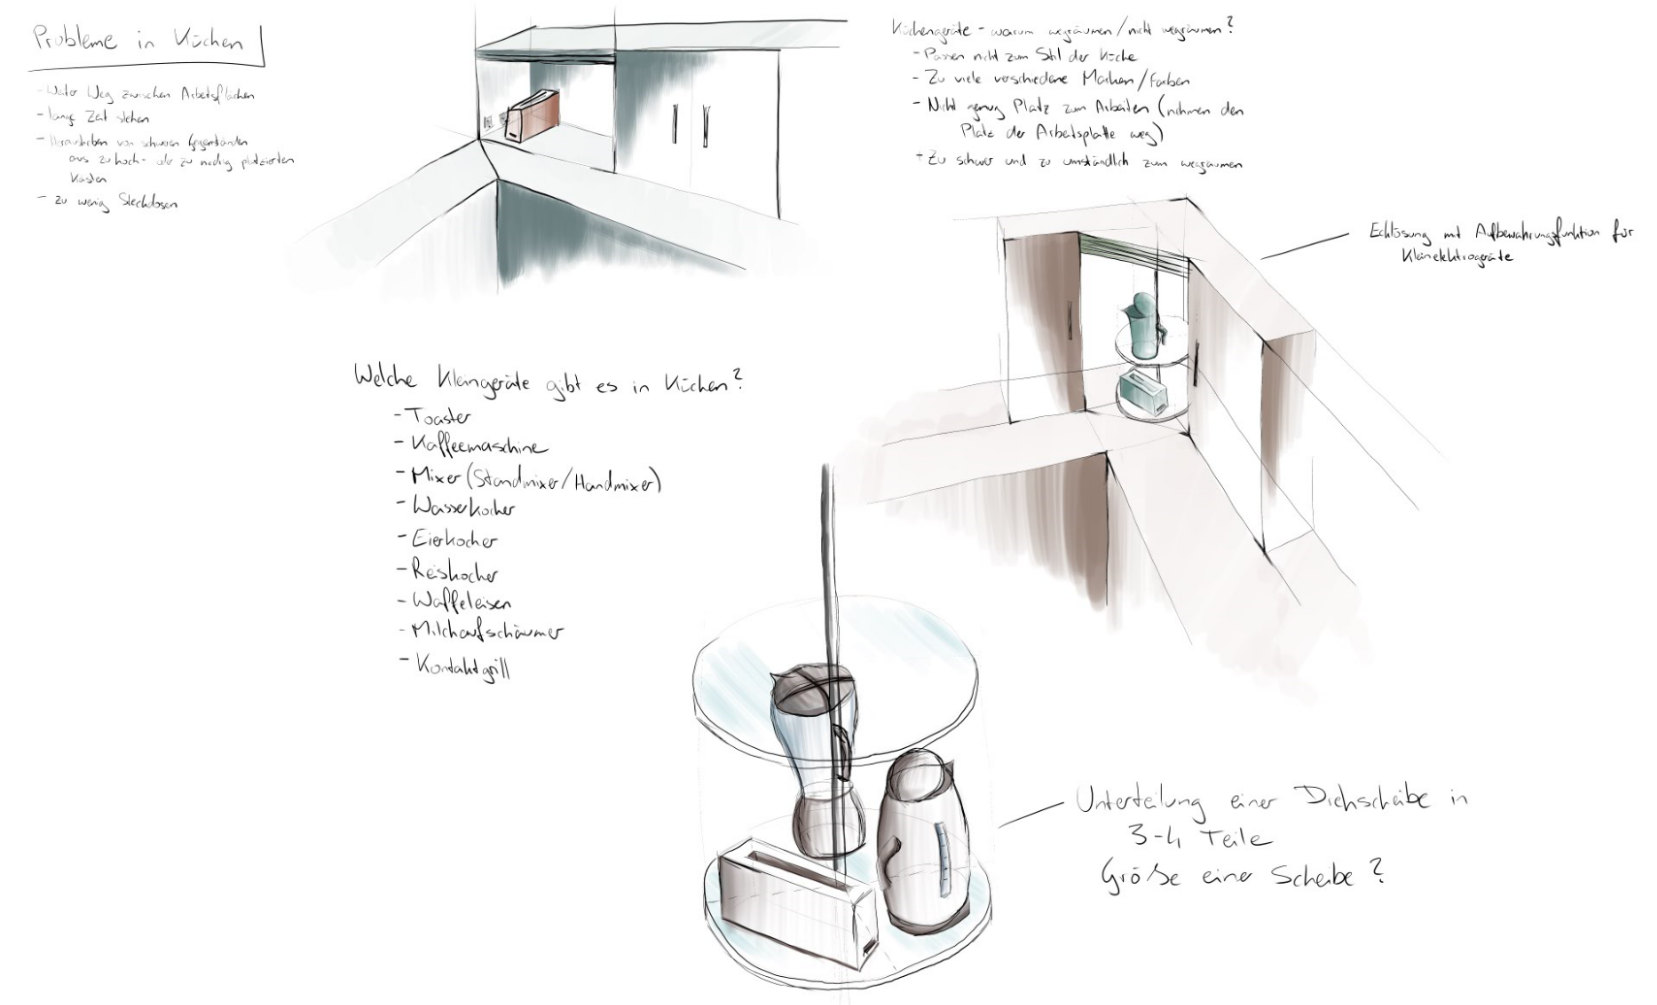 Probleme in Küchen
- Weiter Weg zwischen Arbeitsflächen
- lange Zeit stehen
- Herausheben von schweren Gegenständen
aus zu hoch- oder zu niedrig platzierten
Kästen
- zu wenig Steckdosen
Küchengeräte - warum wegräumen/nicht wegräumen?
- Passen nicht zum Stil der Küche
- Zu viele verschiedene Marken/Farben
- Nicht genug Platz zum Arbeiten (nehmen den
Platz der Arbeitsplatte weg)
+ Zu schwer und zu umständlich zum wegräumen
Ecklösung mit Aufbewahrungsfunktion für
Kleinelektrogeräte
Welche Kleingeräte gibt es in Küchen?
- Toaster
- Kaffeemaschine
- Mixer (Standmixer/Handmixer)
- Wasserkocher
- Eierkocher
- Reiskocher
- Waffeleisen
- Milchaufschäumer
- Kontaktgrill
Unterteilung einer Drehscheibe in
3-4 Teile
Größe einer Scheibe?